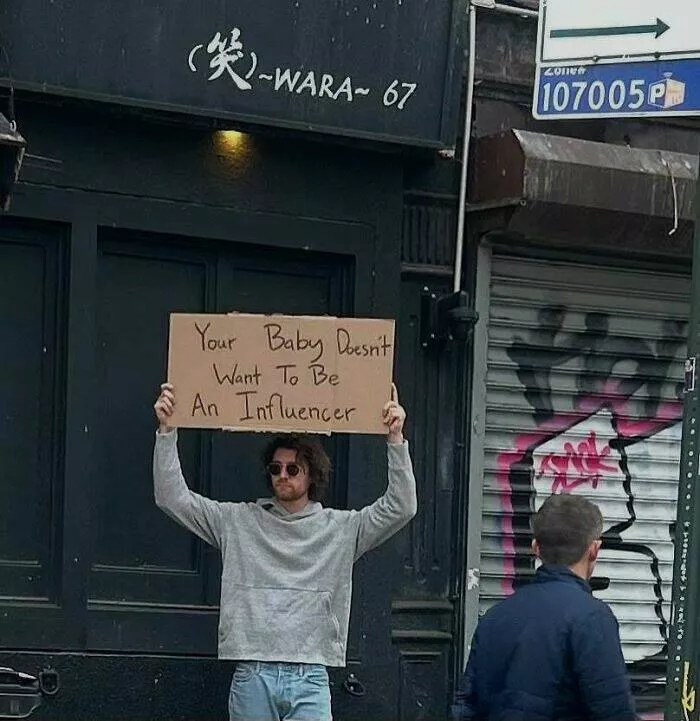 (笑)~WARA~ 67
Zone#
107005 P
Your Baby Doesn't
Want To Be
An Influencer